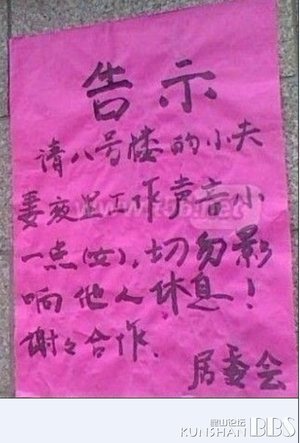 告示
请八号楼的小夫
妻夜里工作声音小
一点(女),切勿影
响他人休息!
谢々合作.
居委会
昆山论坛
KUNSHAN BBS